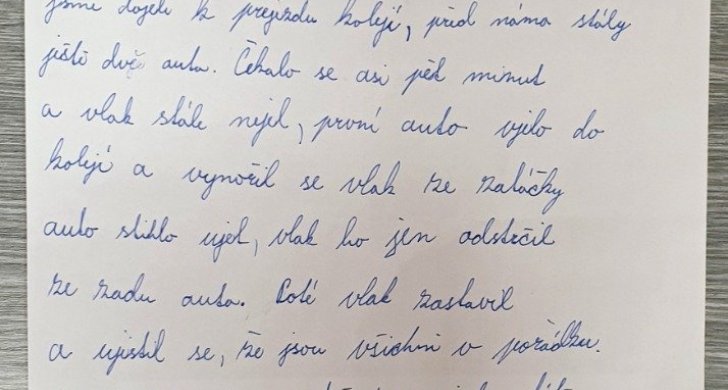 jsme dojeli k přejezdu kolejí, před náma stály
ještě dvě auta. Čekalo se asi pět minut
a vlak stále nejel, první auto vjelo do
kolejí a vynořil se vlak ze zatáčky
auto stihlo ujet, vlak ho jen odstrčil
ze zadu auta. Poté vlak zastavil
a ujistil se, že jsou všichni v pořádku.